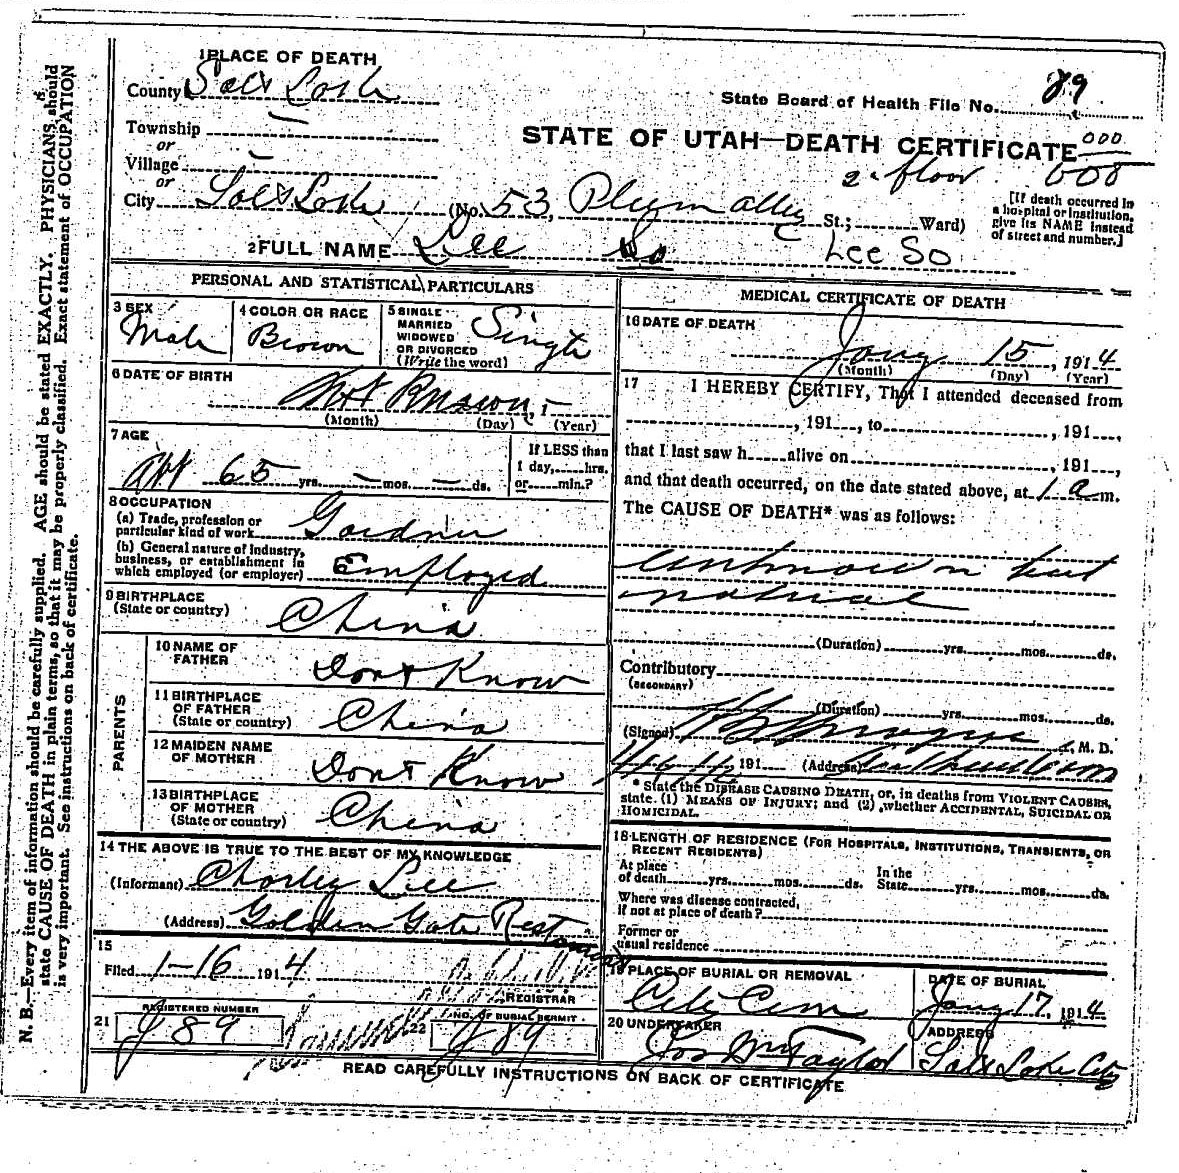 1 PLACE OF DEATH
County Salt Lake
State Board of Health File No. 89
Township
or
STATE OF UTAH—DEATH CERTIFICATE
000
008
Village
or
2d floor
City Salt Lake (No. 53, Plum alley St.; Ward)
[If death occurred in
a hospital or institution,
give its NAME instead
of street and number.]
2 FULL NAME Lee So Lee So
PERSONAL AND STATISTICAL PARTICULARS
3 SEX
Male
4 COLOR OR RACE
Brown
5 SINGLE
MARRIED
WIDOWED
OR DIVORCED
(Write the word)
Single
6 DATE OF BIRTH
Not Known
(Month) (Day) (Year)
7 AGE
Abt 65 yrs. — mos. — ds.
If LESS than
1 day, hrs.
or min.?
8 OCCUPATION
(a) Trade, profession or
particular kind of work Gardner
(b) General nature of industry,
business, or establishment in
which employed (or employer) Employed
9 BIRTHPLACE
(State or country) China
PARENTS
10 NAME OF
FATHER Dont Know
11 BIRTHPLACE
OF FATHER
(State or country) China
12 MAIDEN NAME
OF MOTHER Dont Know
13 BIRTHPLACE
OF MOTHER
(State or country) China
14 THE ABOVE IS TRUE TO THE BEST OF MY KNOWLEDGE
(Informant) Charley Lee
(Address) Golden Gate Restaurant
15
Filed 1-16 1914
REGISTRAR
21 REGISTERED NUMBER
J 89
22 NO. OF BURIAL PERMIT
J 89
MEDICAL CERTIFICATE OF DEATH
16 DATE OF DEATH
Jany 15, 1914
(Month) (Day) (Year)
17 I HEREBY CERTIFY, That I attended deceased from
, 191 , to , 191 ,
that I last saw h alive on , 191 ,
and that death occurred, on the date stated above, at 1 a m.
The CAUSE OF DEATH* was as follows:
unknown but
natural
(Duration) yrs. mos. ds.
Contributory
(SECONDARY)
(Duration) yrs. mos. ds.
(Signed) , M. D.
, 191 (Address)
* State the DISEASE CAUSING DEATH, or, in deaths from VIOLENT CAUSES,
state (1) MEANS OF INJURY; and (2) whether ACCIDENTAL, SUICIDAL OR
HOMICIDAL.
18 LENGTH OF RESIDENCE (FOR HOSPITALS, INSTITUTIONS, TRANSIENTS, OR
RECENT RESIDENTS)
At place
of death yrs. mos. ds.
In the
State yrs. mos. ds.
Where was disease contracted,
if not at place of death?
Former or
usual residence
19 PLACE OF BURIAL OR REMOVAL
City Cem
DATE OF BURIAL
Jany 17, 1914
20 UNDERTAKER
Jos Wm Taylor
ADDRESS
Salt Lake City
READ CAREFULLY INSTRUCTIONS ON BACK OF CERTIFICATE
N. B.—Every item of information should be carefully supplied. AGE should be stated EXACTLY. PHYSICIANS should
state CAUSE OF DEATH in plain terms, so that it may be properly classified. Exact statement of OCCUPATION
is very important. See instructions on back of certificate.